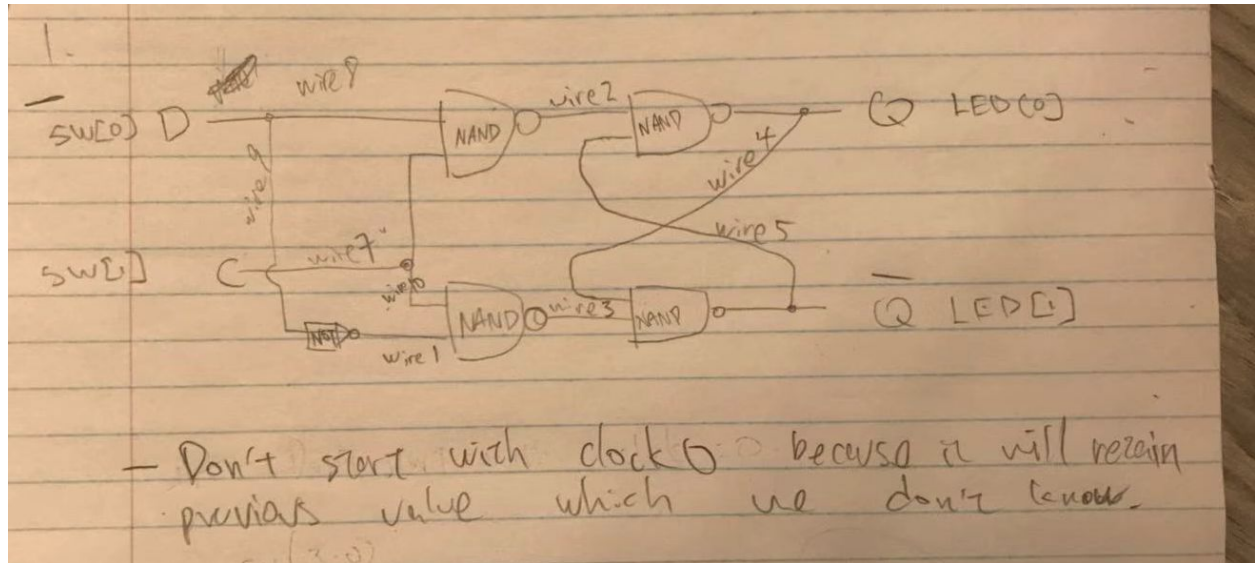 1.
wire8
SW[0] D
NAND
wire2
NAND
Q LED[0]
wire9
wire4
wire5
SW[1] C
wire7
wire10
NAND
wire3
NAND
Q̅ LED[1]
NOT
wire1
- Don't start with clock 0 becuse it will retain
previous value which we don't know.